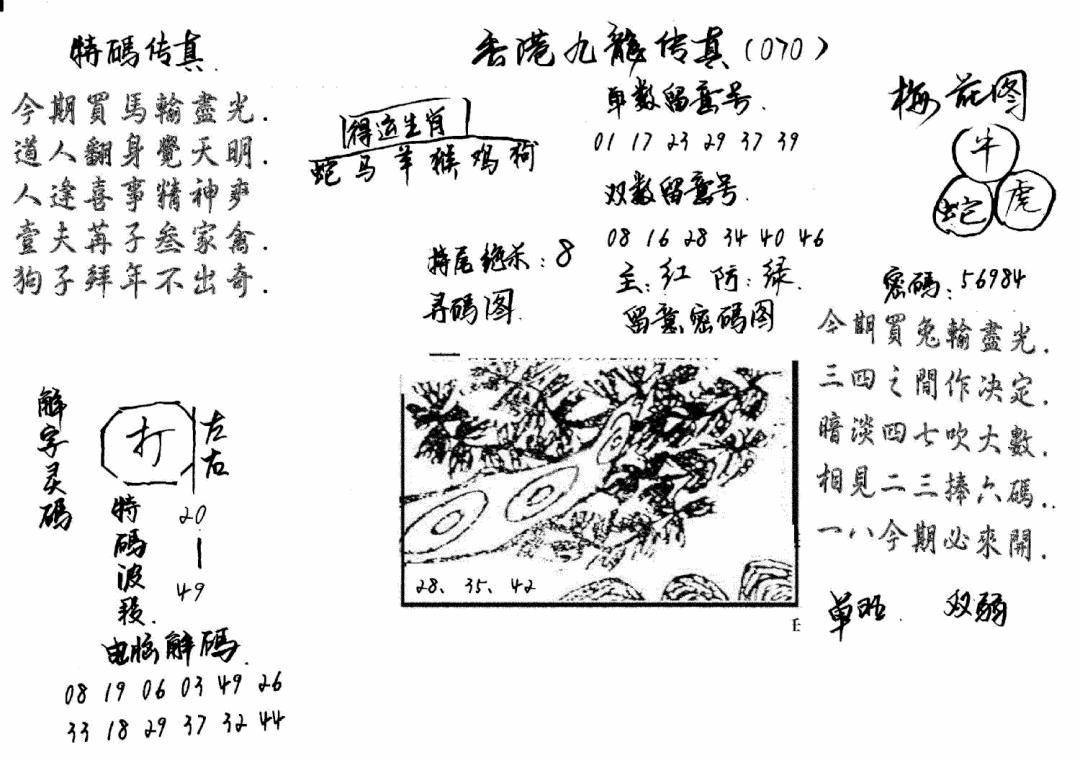 特碼传真.
今期買馬輸盡光.
道人翻身覺天明.
人逢喜事精神爽
壹夫苒子叁家禽.
狗子拜年不出奇.
香港九龍传真(070)
得运生肖
蛇马羊猴鸡狗
单数留意号.
01 17 23 29 37 39
双数留意号.
08 16 28 34 40 46
特尾绝杀:8
主:红 防:绿.
寻码图.
留意密码图
28、35、42
梅花图
牛
蛇 虎
密碼:56984
今期買兔輸盡光.
三四之間作决定.
暗淡四七吹大數.
相見二三捧六碼..
一八今期必來開.
单旺. 双弱
解字灵碼
打
左右
特碼波段.
20-49
电脑解碼.
08 19 06 03 49 26
33 18 29 37 32 44